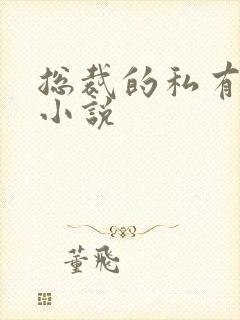 总裁的私有
小说
董飛